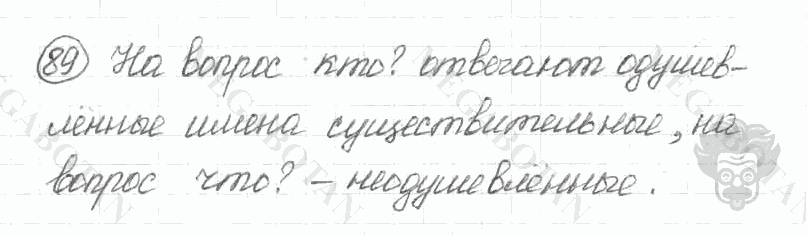 89 На вопрос кто? отвечают одушев-
лённые имена существительные, на
вопрос что? – неодушевлённые.
MEGABOTAN